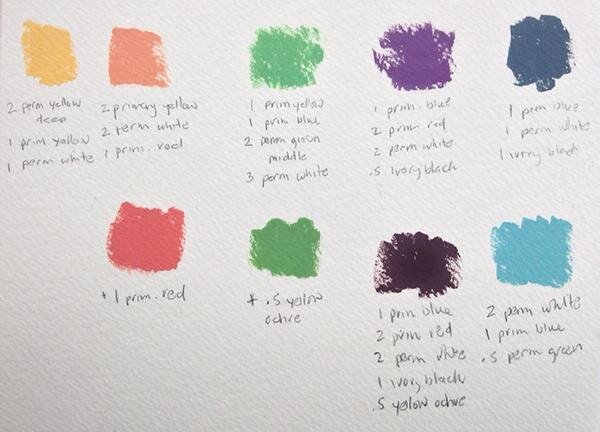 2 perm yellow
deep
1 prim. yellow
1 perm white
2 primary yellow
2 perm white
1 prim. red
1 prim yellow
1 prim blue
2 perm green
middle
3 perm white
1 prim. blue
2 prim red
2 perm white
.5 ivory black
1 prim blue
1 perm white
1 ivory black
+ 1 prim. red
+ .5 yellow
ochre
1 prim blue
2 prim red
2 perm white
1 ivory black
.5 yellow ochre
2 perm white
1 prim blue
.5 perm green